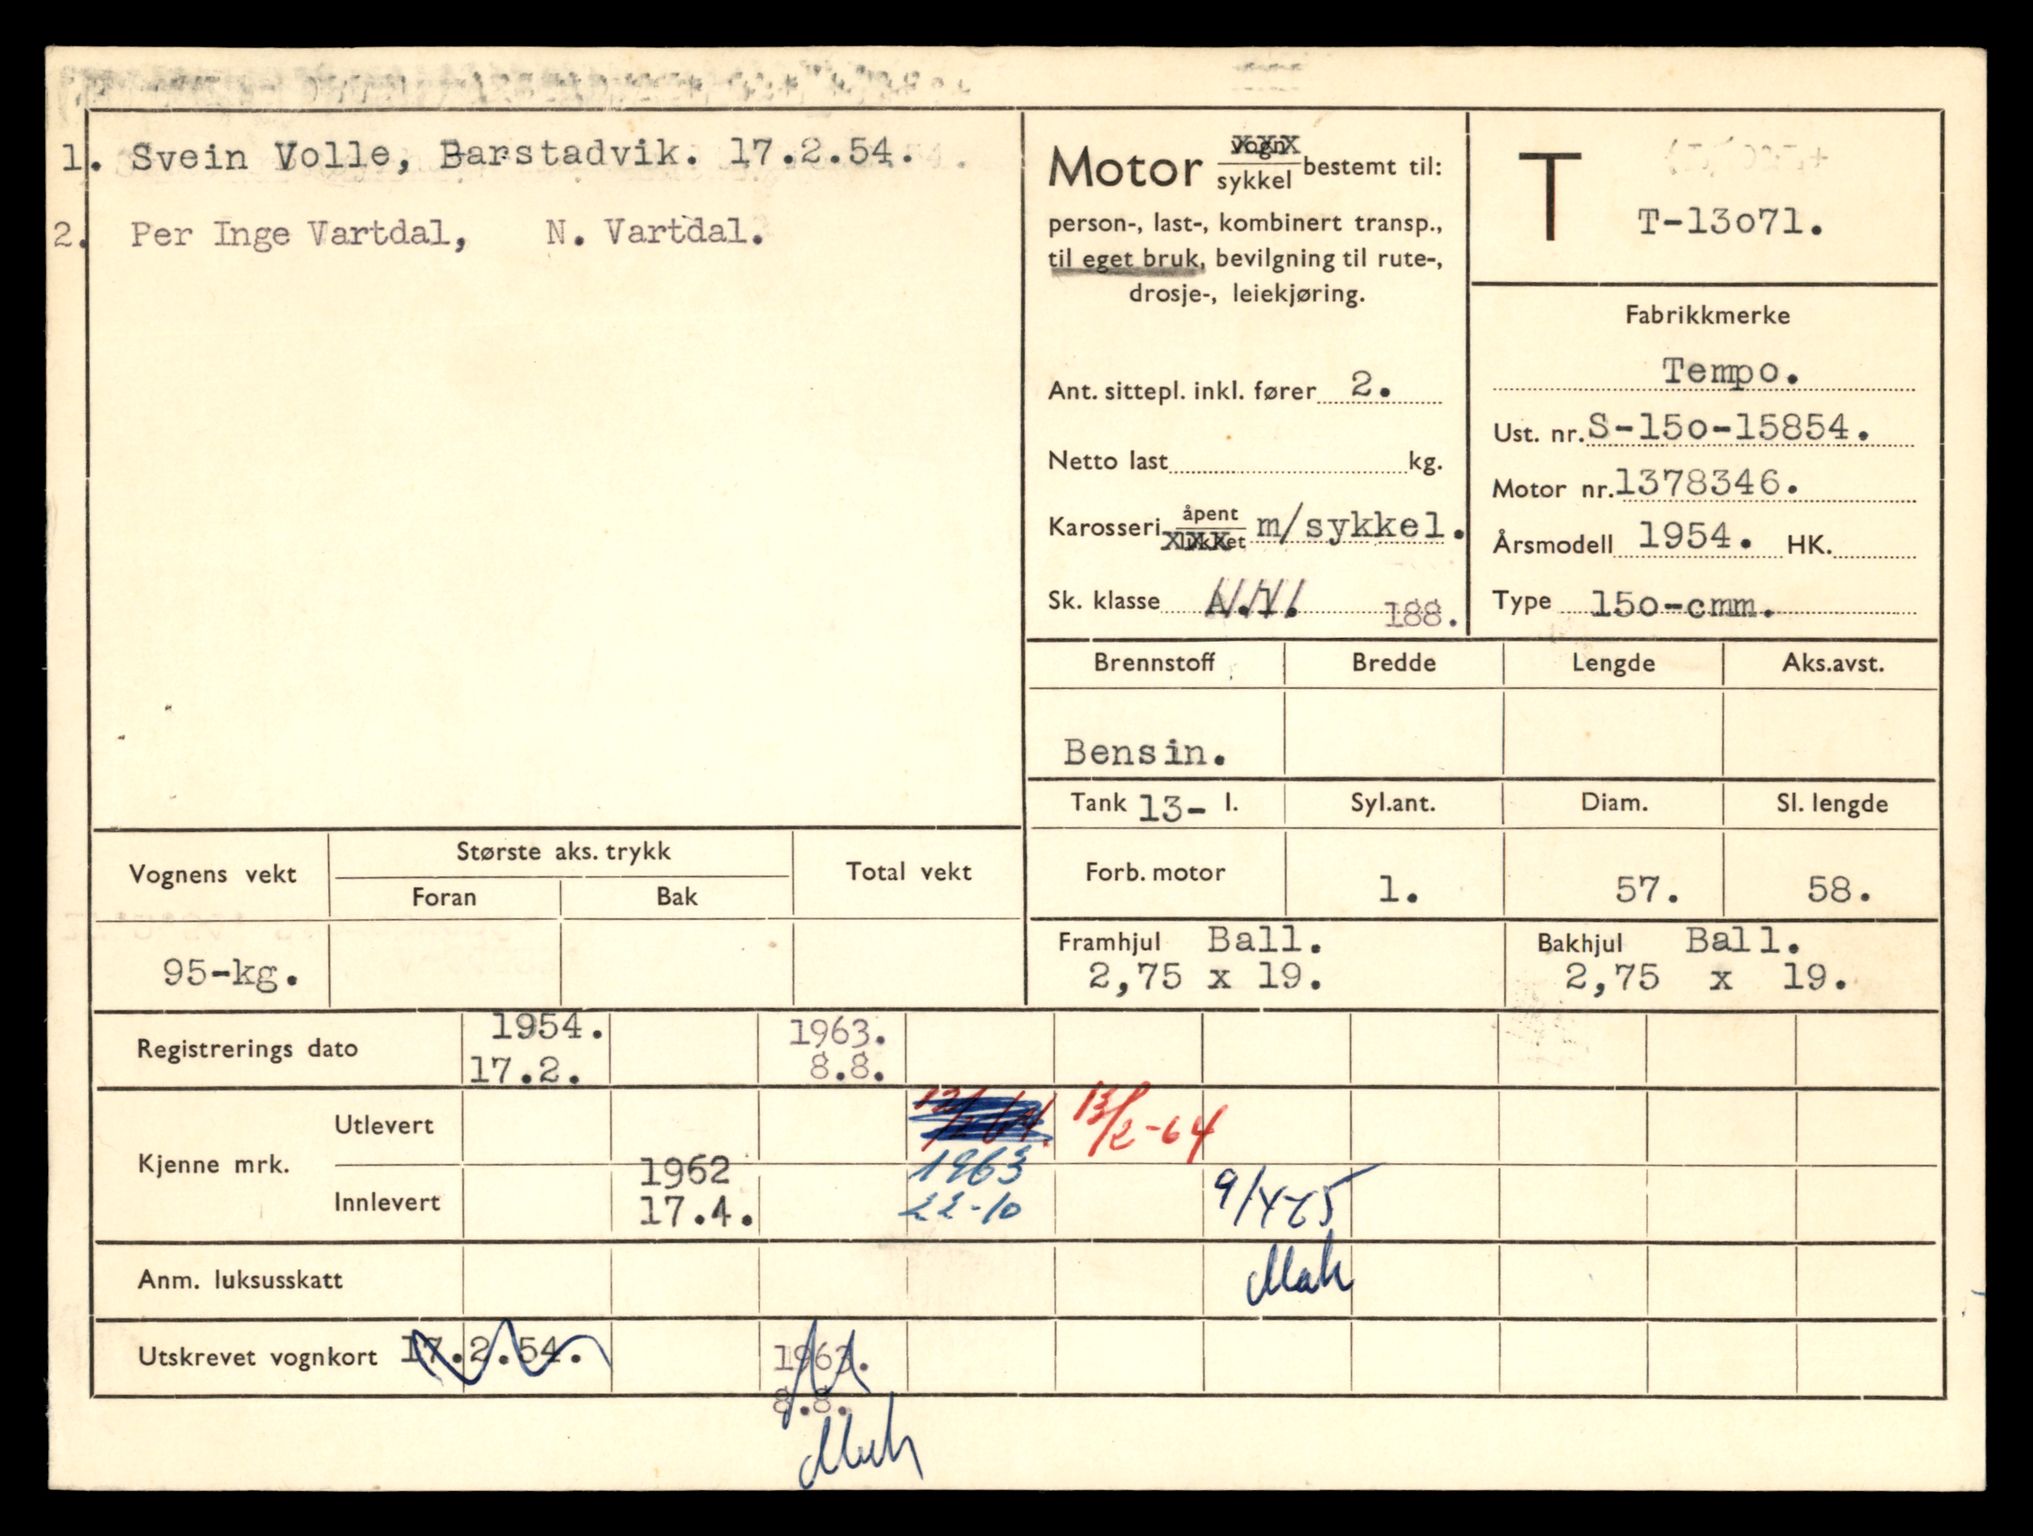 1. Svein Volle, Barstadvik. 17.2.54.
2. Per Inge Vartdal, N. Vartdal.
Motor vogn sykkel bestemt til:
person-, last-, kombinert transp.,
til eget bruk, bevilgning til rute-,
drosje-, leiekjøring.
Ant. sittepl. inkl. fører 2.
Netto last kg.
Karosseri åpent lukket m/sykkel.
Sk. klasse A.1. 188.
T
T-13o71.
Fabrikkmerke
Tempo.
Ust. nr. S-15o-15854.
Motor nr. 1378346.
Årsmodell 1954. HK.
Type 15o-cmm.
Brennstoff Bredde Lengde Aks.avst.
Bensin.
Tank 13- l. Syl.ant. Diam. Sl. lengde
Forb. motor 1. 57. 58.
Framhjul Ball. Bakhjul Ball.
2,75 x 19. 2,75 x 19.
Vognens vekt Største aks. trykk Total vekt
Foran Bak
95-kg.
Registrerings dato 1954. 1963.
17.2. 8.8.
Kjenne mrk. Utlevert 13/2-64
Innlevert 1962 1963
17.4. 22-10 9/4-65
Anm. luksusskatt Mah
Utskrevet vognkort 17.2.54. 1963.
8.8.
Mah